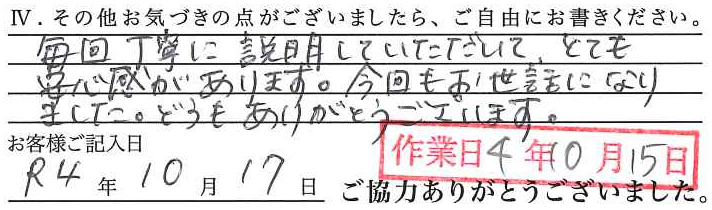 Ⅳ．その他お気づきの点がございましたら、ご自由にお書きください。
毎回丁寧に説明していただいて、とても
安心感があります。今回もお世話になり
ました。どうもありがとうございます。
お客様ご記入日
作業日4年10月15日
R4年10月17日
ご協力ありがとうございました。